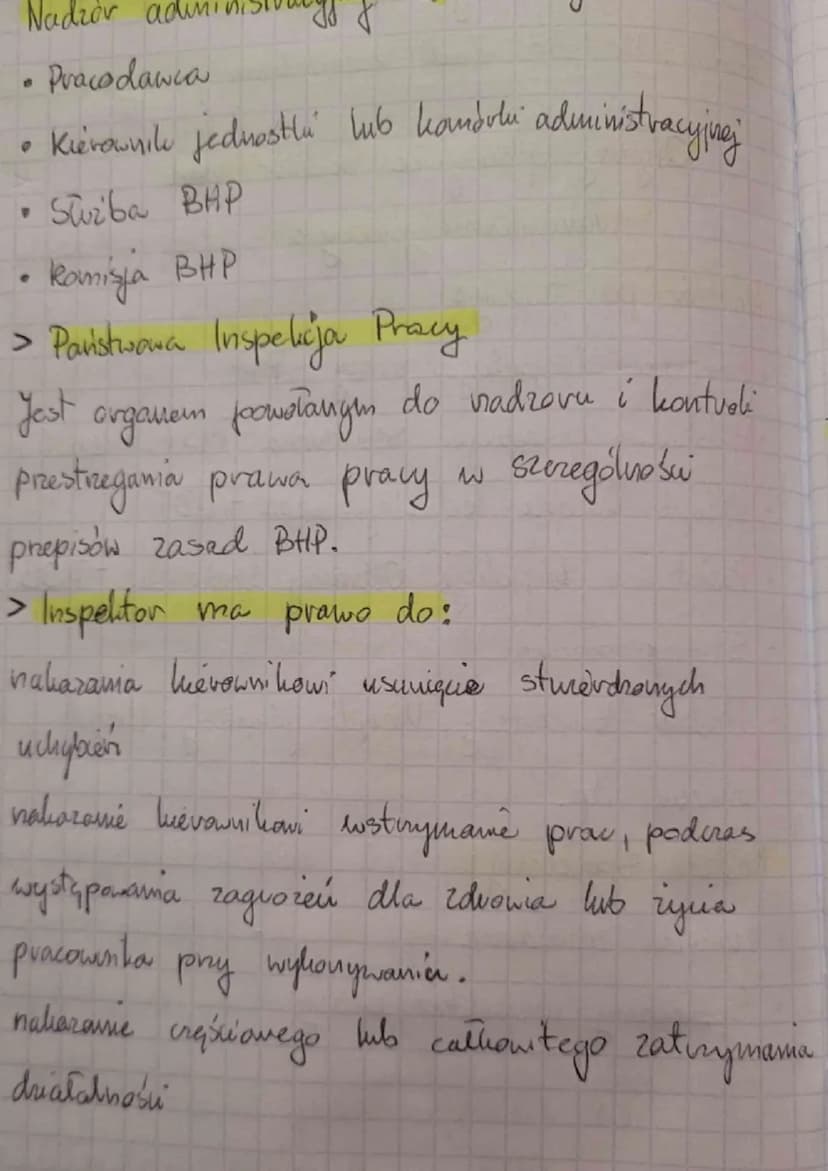 Nadzór
• Pracodawca
• Kierownik jednostki lub komórki administracyjnej
• Służba BHP
• Komisja BHP
> Państwowa Inspekcja Pracy
Jest organem powołanym do nadzoru i kontroli
przestrzegania prawa pracy w szczególności
przepisów zasad BHP.
> Inspektor ma prawo do:
nakazania kierownikowi usunięcie stwierdzonych
uchybień
nakazanie kierownikowi wstrzymanie prac, podczas
występowania zagrożeń dla zdrowia lub życia
pracownika przy wykonywaniu.
nakazanie częściowego lub całkowitego zatrzymania
działalności